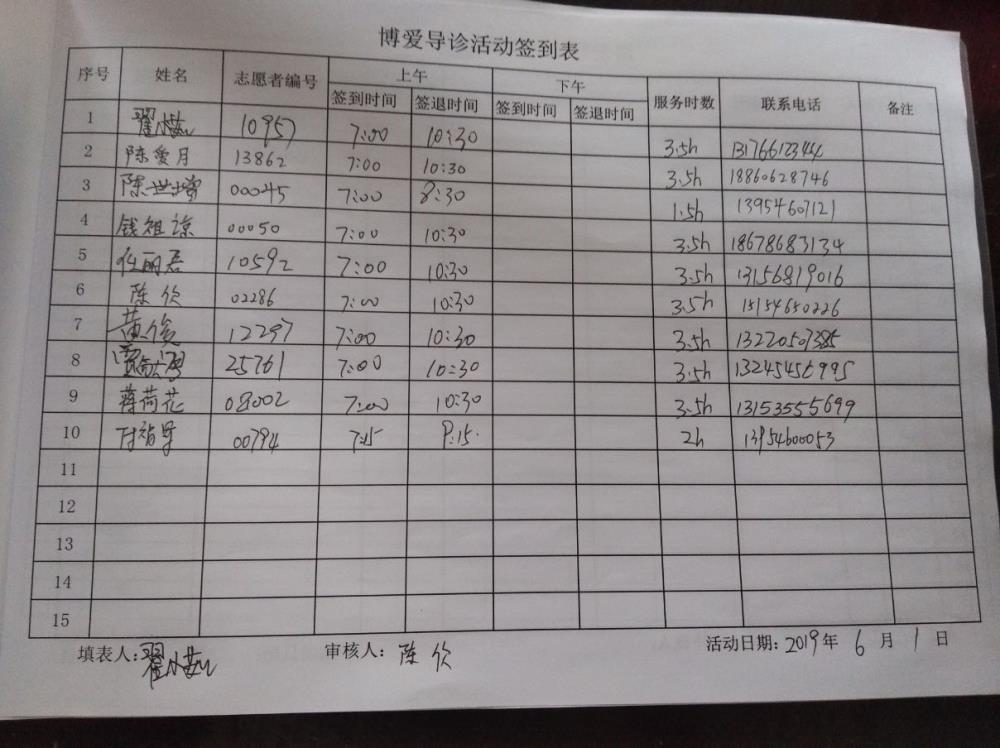 博爱导诊活动签到表
序号 姓名 志愿者编号 上午 下午 服务时数 联系电话 备注
签到时间 签退时间 签到时间 签退时间
1 翟 10957 7:00 10:30 3.5h 13176612344
2 陈爱月 13862 7:00 10:30 3.5h 18860628746
3 陈世增 00045 7:00 8:30 1.5h 13954607121
4 钱祖谅 00050 7:00 10:30 3.5h 18678683134
5 任丽君 10592 7:00 10:30 3.5h 13156819016
6 陈欣 02286 7:00 10:30 3.5h 15154650226
7 黄俊 12297 7:00 10:30 3.5h
8 25761 7:00 10:30 3.5h 13245456995
9 蒋荷花 08002 7:00 10:30 3.5h 13153555699
10 00794 7:15 9:15 2h 13954600053
11
12
13
14
15
填表人:翟 审核人: 陈欣 活动日期:2019年 6 月 1 日